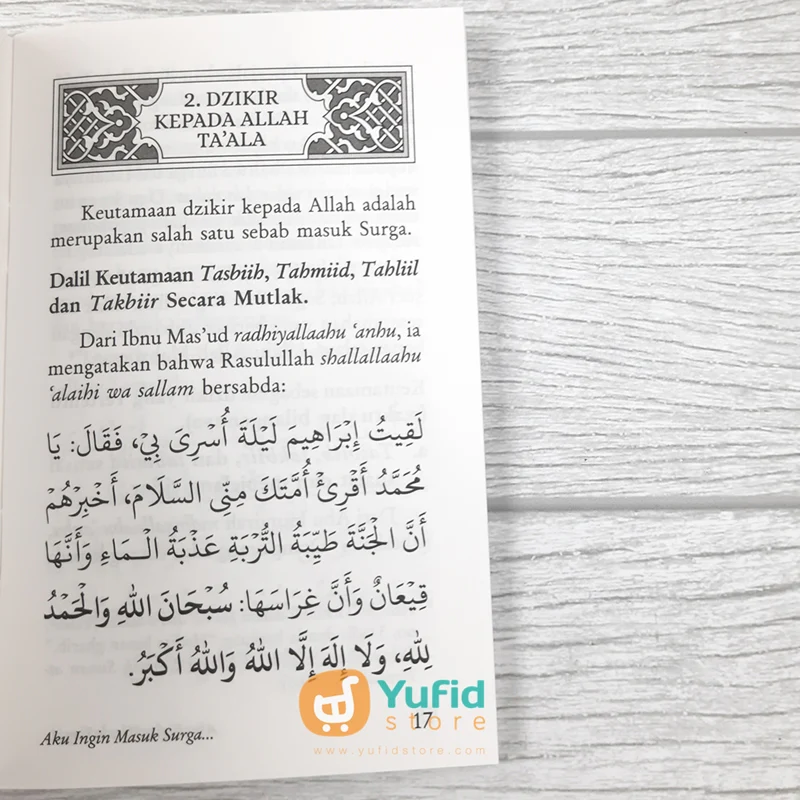 2. DZIKIR
KEPADA ALLAH
TA'ALA
Keutamaan dzikir kepada Allah adalah
merupakan salah satu sebab masuk Surga.
Dalil Keutamaan Tasbiih, Tahmiid, Tahliil
dan Takbiir Secara Mutlak.
Dari Ibnu Mas'ud radhiyallaahu 'anhu, ia
mengatakan bahwa Rasulullah shallallaahu
'alaihi wa sallam bersabda:
لَقِيْتُ إِبْرَاهِيْمَ لَيْلَةَ أُسْرِيَ بِيْ، فَقَالَ: يَا
مُحَمَّدُ أَقْرِئْ أُمَّتَكَ مِنِّي السَّلَامَ، أَخْبِرْهُمْ
أَنَّ الْجَنَّةَ طَيِّبَةُ التُّرْبَةِ عَذْبَةُ الْـمَـاءِ وَأَنَّهَا
قِيْعَانٌ وَأَنَّ غِرَاسَهَا: سُبْحَانَ اللهِ وَالْحَمْدُ
لِلهِ، وَلَا إِلَهَ إِلَّا اللهُ وَاللهُ أَكْبَرُ.
Yufid
store
www.yufidstore.com
17
Aku Ingin Masuk Surga...